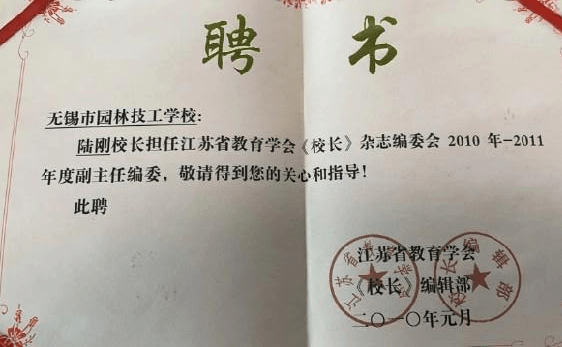 聘 书
无锡市园林技工学校:
陆刚校长担任江苏省教育学会《校长》杂志编委会 2010 年-2011
年度副主任编委，敬请得到您的关心和指导!
此聘
江苏省教育学会
《校长》编辑部
二〇一〇年元月